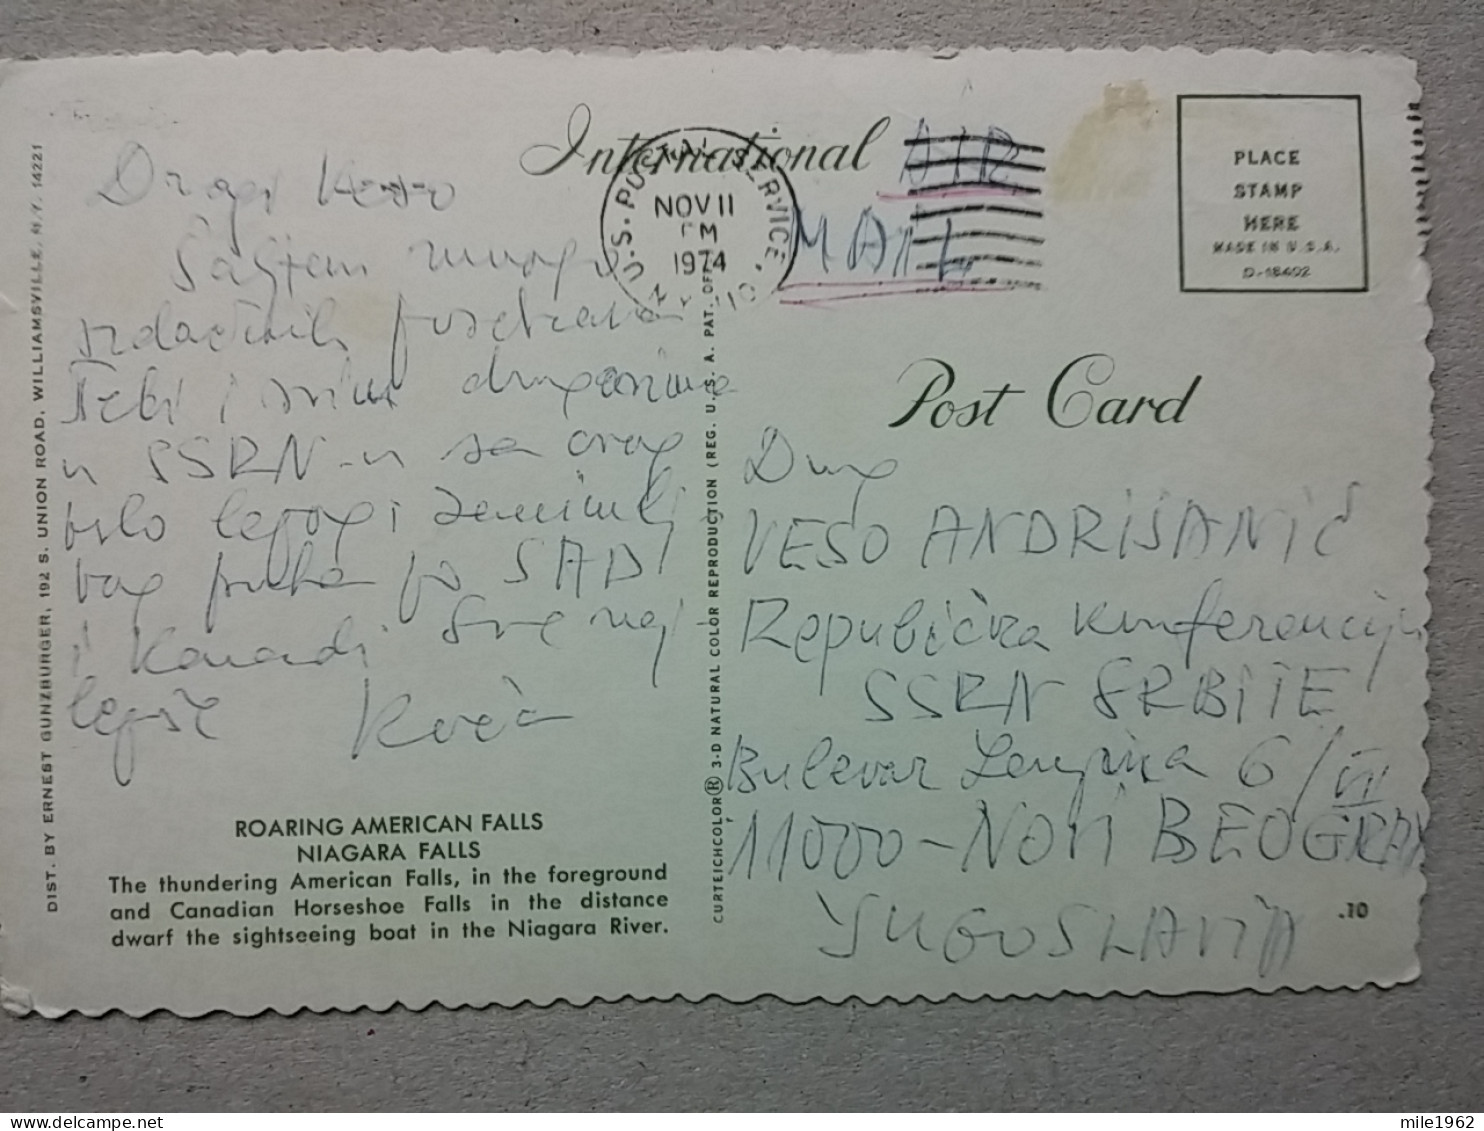 International AIR
MAIL
U.S. POSTAL SERVICE
NOV 11
PM
1974
PLACE
STAMP
HERE
MADE IN U.S.A.
D-18402
Post Card
Dragi Veso
Šaljem mnogo
srdačnih pozdrava
Tebi i svim drugovima
u SSRN-u sa ovog
vrlo lepog i zanimlji
vog puta po SAD
i Kanadi Sve naj
lepše
Drug
VESO ANDRIJANIĆ
Republička konferencija
SSRN SRBIJE
Bulevar Lenjina 6/VI
11000-NOVI BEOGRAD
YUGOSLAVIA
ROARING AMERICAN FALLS
NIAGARA FALLS
The thundering American Falls, in the foreground
and Canadian Horseshoe Falls in the distance
dwarf the sightseeing boat in the Niagara River.
.10
DIST. BY ERNEST GUNZBURGER, 192 S. UNION ROAD, WILLIAMSVILLE, N.Y. 14221
CURTEICHCOLOR® 3-D NATURAL COLOR REPRODUCTION (REG. U.S.A. PAT. OFF.
mile1962